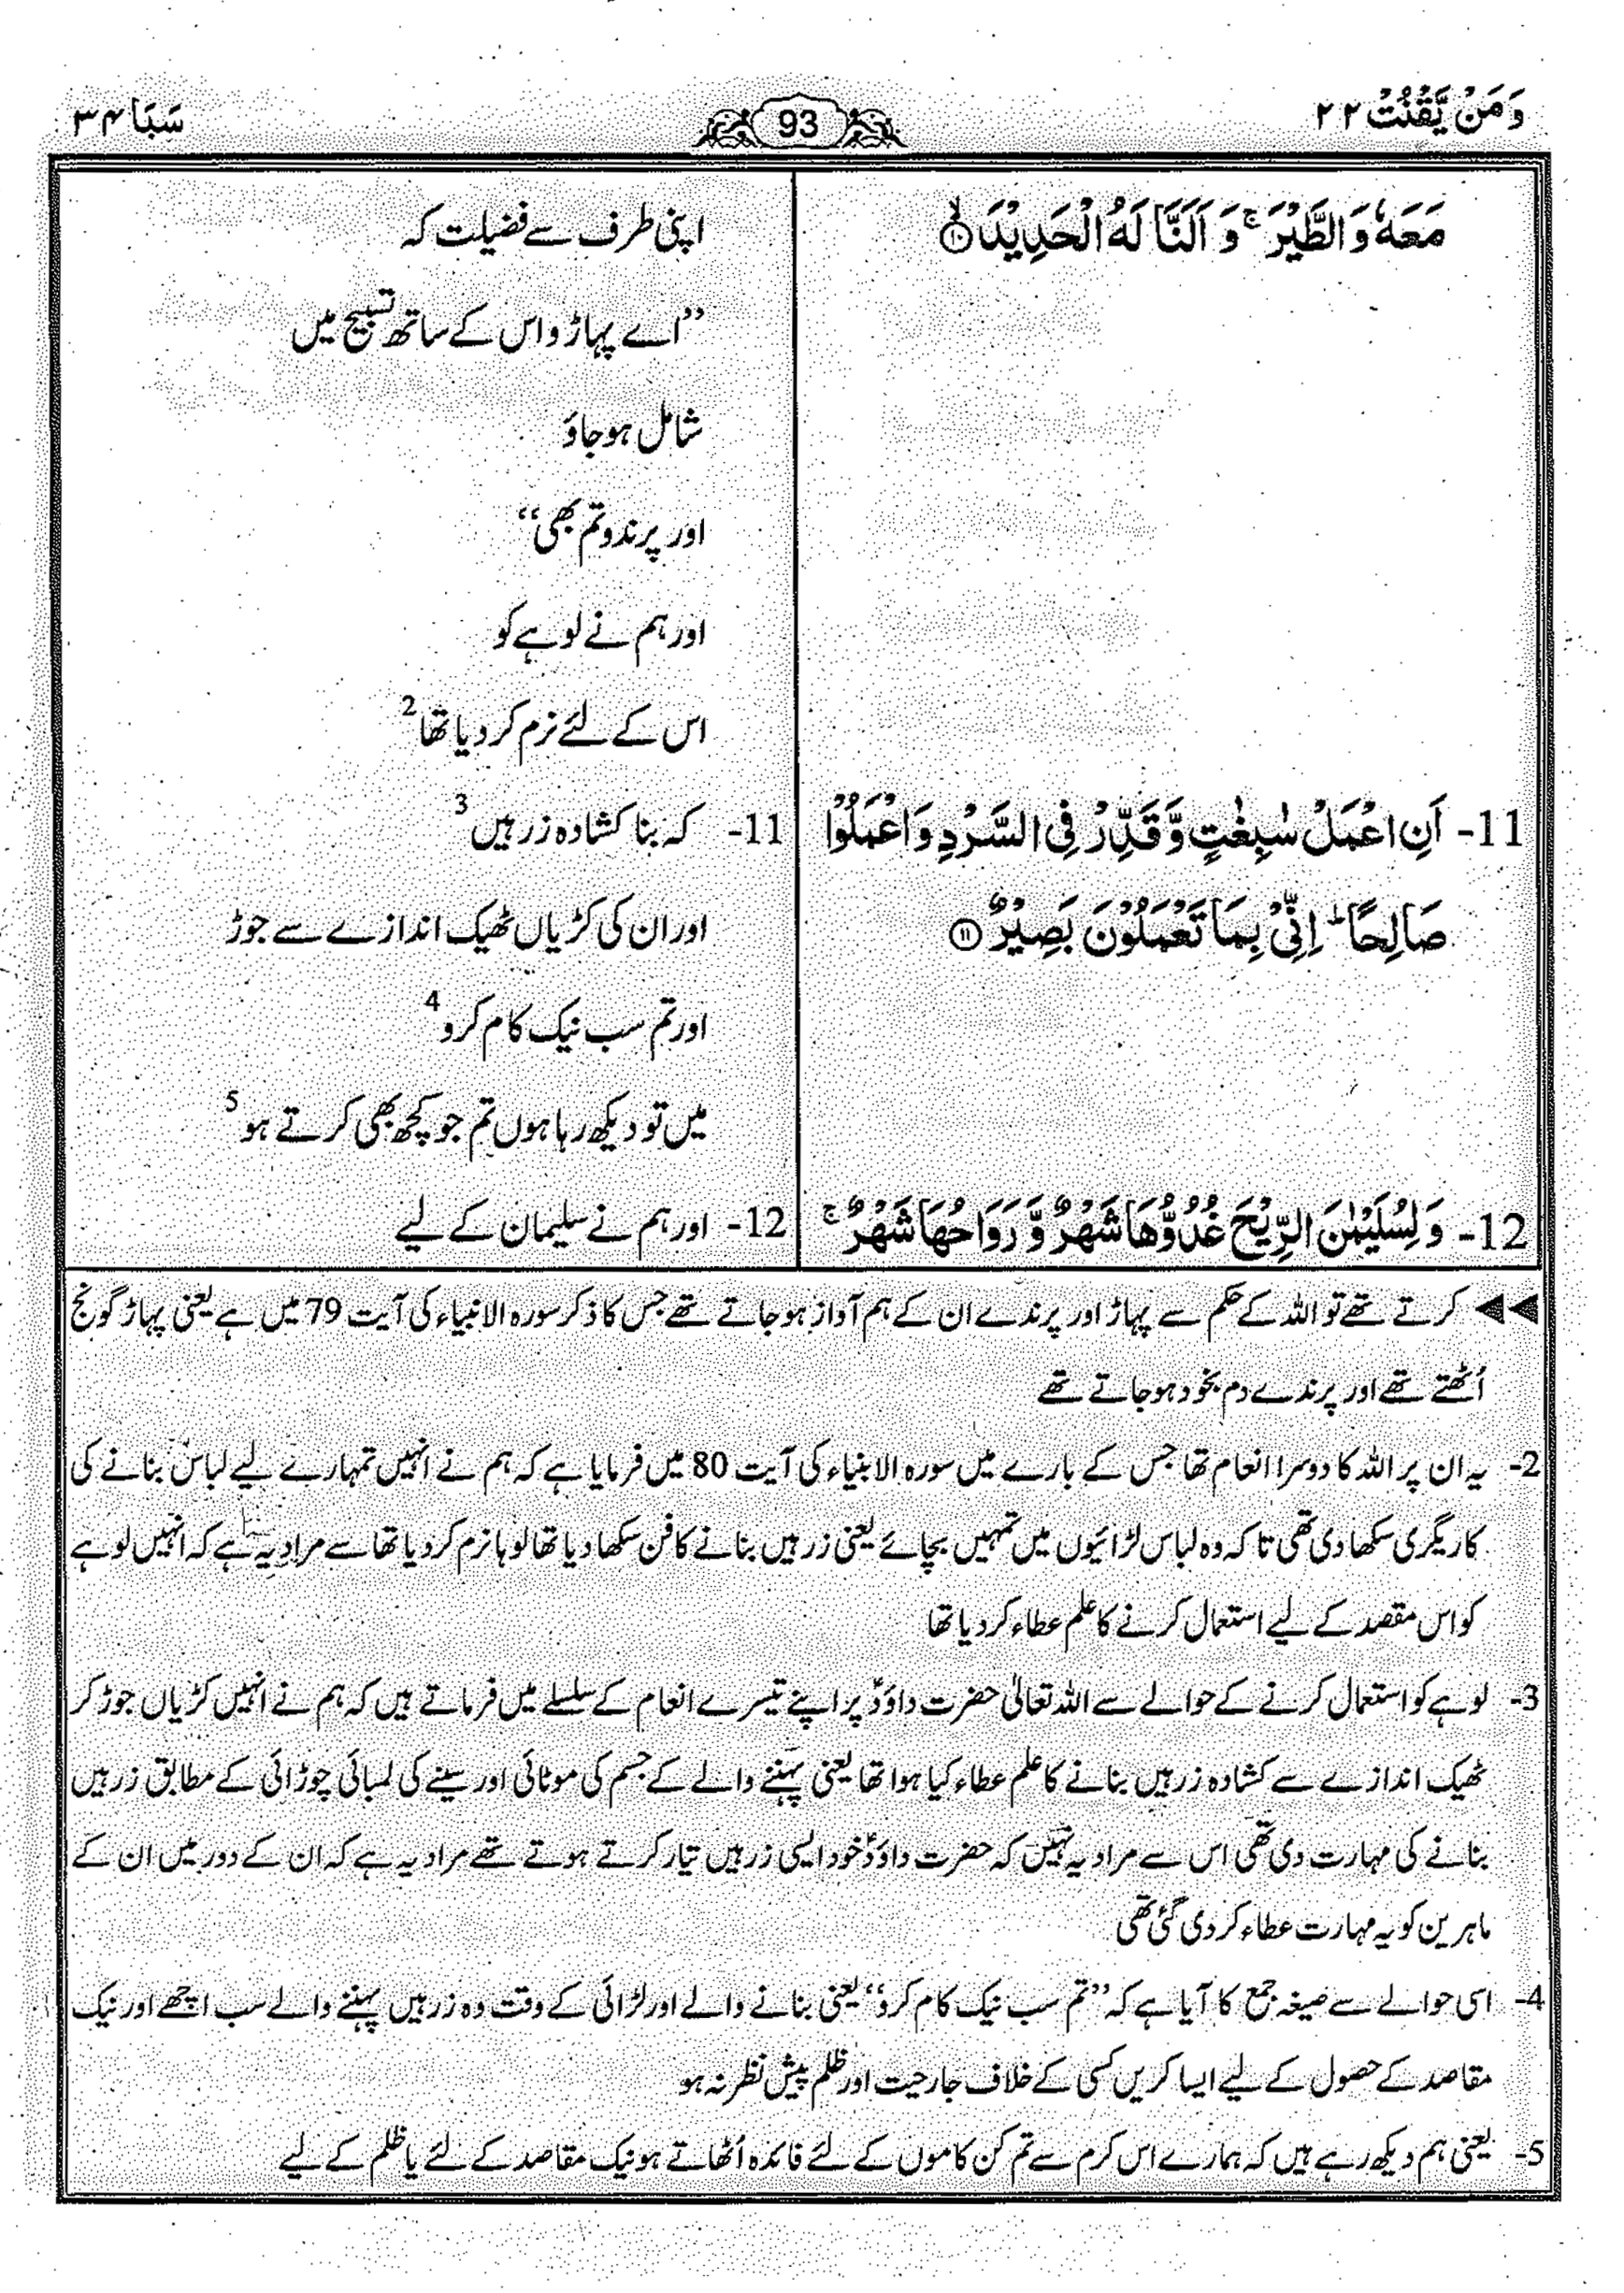 وَمَنْ يَّقْنُتْ ۲۲
93
سَبَا ۳۴
مَعَهٗ وَالطَّيْرَ ۚ وَ اَلَنَّا لَهُ الْحَدِيْدَ ۙ۱۰
11- اَنِ اعْمَلْ سٰبِغٰتٍ وَّ قَدِّرْ فِى السَّرْدِ وَاعْمَلُوْا
صَالِحًا ؕ اِنِّىْ بِمَا تَعْمَلُوْنَ بَصِيْرٌ ۱۱
12- وَ لِسُلَيْمٰنَ الرِّيْحَ غُدُوُّهَا شَهْرٌ وَّ رَوَاحُهَا شَهْرٌ ۚ
اپنی طرف سے فضیلت کہ
”اے پہاڑو اس کے ساتھ تسبیح میں
شامل ہو جاؤ
اور پرندو تم بھی“
اور ہم نے لوہے کو
اس کے لئے نرم کر دیا تھا 2
11- کہ بنا کشادہ زرہیں 3
اور ان کی کڑیاں ٹھیک اندازے سے جوڑ
اور تم سب نیک کام کرو 4
میں تو دیکھ رہا ہوں تم جو کچھ بھی کرتے ہو 5
12- اور ہم نے سلیمان کے لیے
◀◀ کرتے تھے تو اللہ کے حکم سے پہاڑ اور پرندے ان کے ہم آواز ہو جاتے تھے جس کا ذکر سورہ الانبیاء کی آیت 79 میں ہے یعنی پہاڑ گونج
اُٹھتے تھے اور پرندے دم بخود ہو جاتے تھے
2- یہ ان پر اللہ کا دوسرا انعام تھا جس کے بارے میں سورہ الانبیاء کی آیت 80 میں فرمایا ہے کہ ہم نے انہیں تمہارے لیے لباس بنانے کی
کاریگری سکھا دی تھی تا کہ وہ لباس لڑائیوں میں تمہیں بچائے یعنی زرہیں بنانے کا فن سکھا دیا تھا لوہا نرم کر دیا تھا سے مراد یہ ہے کہ انہیں لوہے
کو اس مقصد کے لیے استعمال کرنے کا علم عطاء کر دیا تھا
3- لوہے کو استعمال کرنے کے حوالے سے اللہ تعالیٰ حضرت داؤدؑ پر اپنے تیسرے انعام کے سلسلے میں فرماتے ہیں کہ ہم نے انہیں کڑیاں جوڑ کر
ٹھیک اندازے سے کشادہ زرہیں بنانے کا علم عطاء کیا ہوا تھا یعنی پہننے والے کے جسم کی موٹائی اور سینے کی لمبائی چوڑائی کے مطابق زرہیں
بنانے کی مہارت دی تھی اس سے مراد یہ نہیں کہ حضرت داؤدؑ خود ایسی زرہیں تیار کرتے ہوتے تھے مراد یہ ہے کہ ان کے دور میں ان کے
ماہرین کو یہ مہارت عطاء کر دی گئی تھی
4- اسی حوالے سے صیغہ جمع کا آیا ہے کہ ”تم سب نیک کام کرو“ یعنی بنانے والے اور لڑائی کے وقت وہ زرہیں پہننے والے سب اچھے اور نیک
مقاصد کے حصول کے لیے ایسا کریں کسی کے خلاف جارحیت اور ظلم پیش نظر نہ ہو
5- یعنی ہم دیکھ رہے ہیں کہ ہمارے اس کرم سے تم کن کاموں کے لئے فائدہ اُٹھاتے ہو نیک مقاصد کے لئے یا ظلم کے لیے